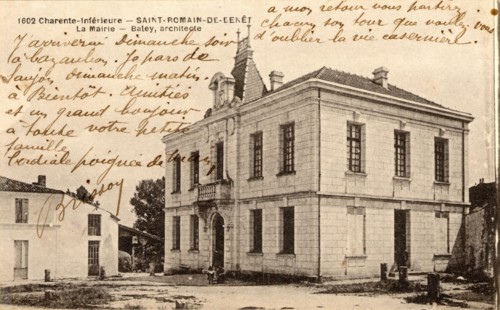 1602 Charente-Inférieure — SAINT-ROMAIN-DE-BENÊT
La Mairie — Batey, architecte
J'arriverai Dimanche soir
à bazauges. Je pars de
Saujon dimanche matin.
à Bientôt. Amitiés
et un grand bonjour
à toute votre petite
famille
Cordiale poignée de main
à mon retour vous
chacun son tour que voulez vous
d'oublier la vie casernière.